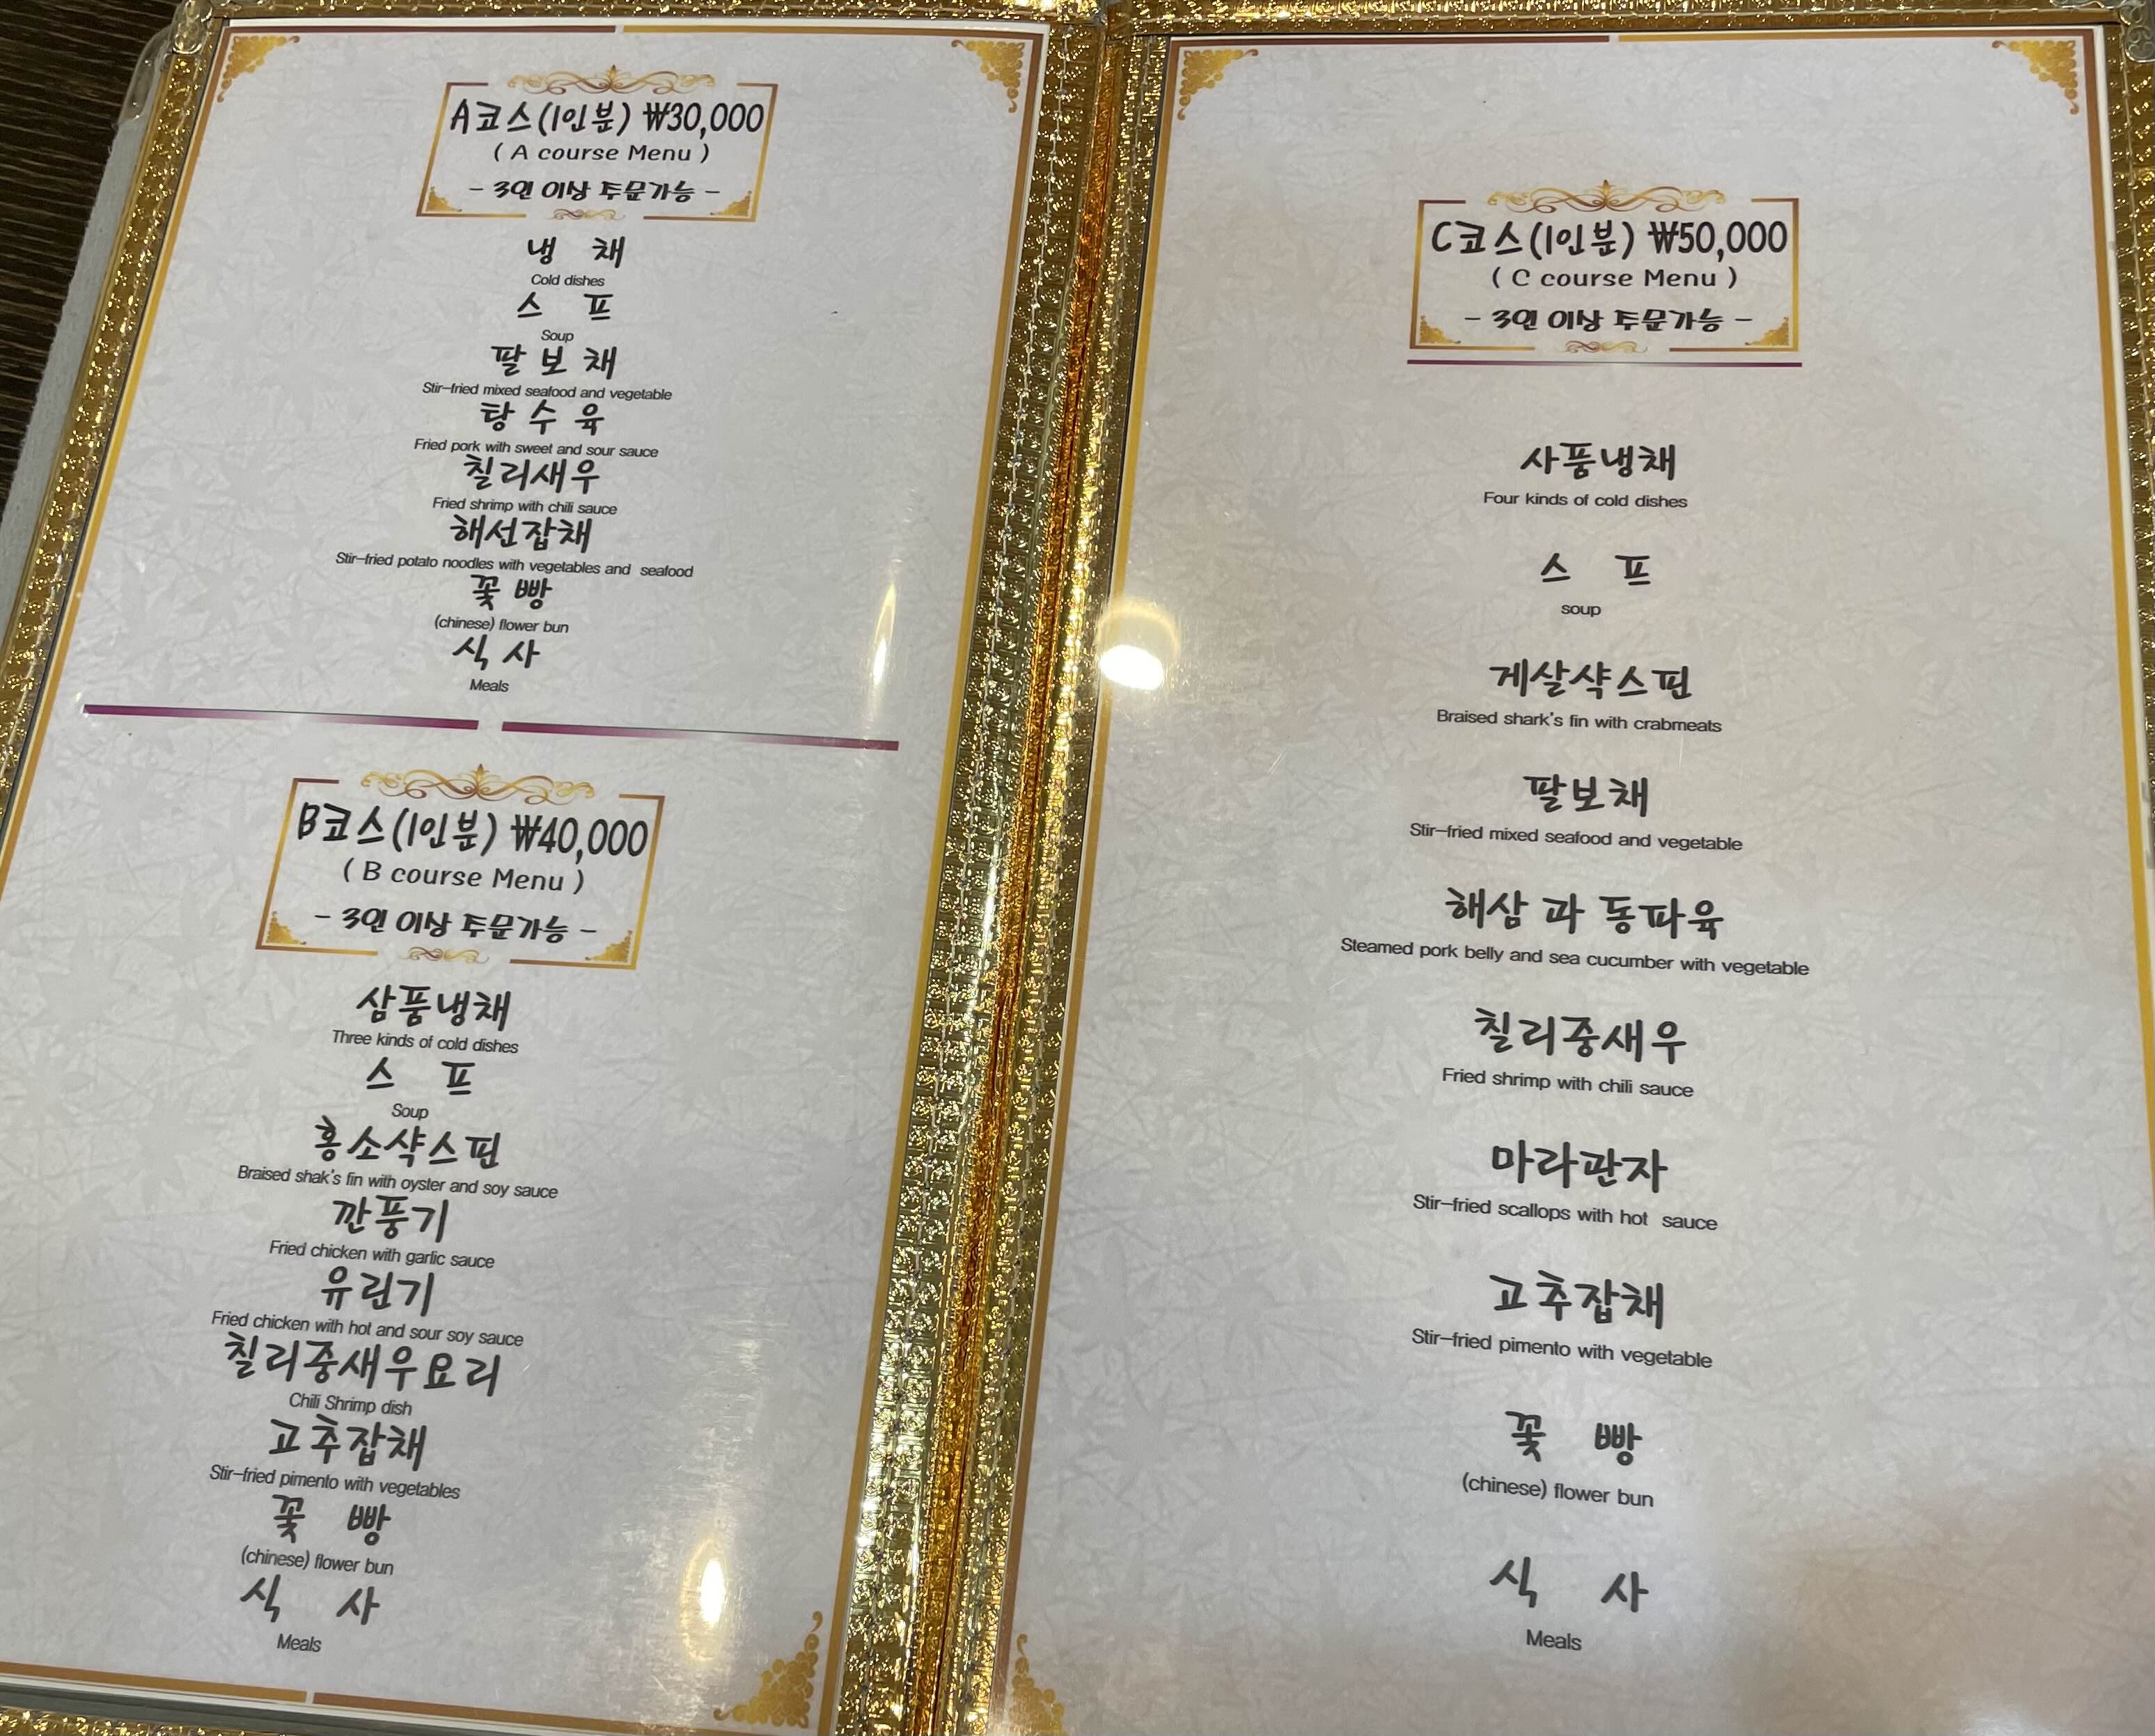 A코스(1인분) ₩30,000
( A course Menu )
- 3인 이상 주문가능 -
냉 채
Cold dishes
스 프
Soup
팔 보 채
Stir-fried mixed seafood and vegetable
탕 수 육
Fried pork with sweet and sour sauce
칠리새우
Fried shrimp with chili sauce
해선잡채
Stir-fried potato noodles with vegetables and seafood
꽃 빵
(chinese) flower bun
식 사
Meals
B코스(1인분) ₩40,000
( B course Menu )
- 3인 이상 주문가능 -
삼품냉채
Three kinds of cold dishes
스 프
Soup
홍소샥스핀
Braised shak's fin with oyster and soy sauce
깐풍기
Fried chicken with garlic sauce
유린기
Fried chicken with hot and sour soy sauce
칠리중새우요리
Chili Shrimp dish
고추잡채
Stir-fried pimento with vegetables
꽃 빵
(chinese) flower bun
식 사
Meals
C코스(1인분) ₩50,000
( C course Menu )
- 3인 이상 주문가능 -
사품냉채
Four kinds of cold dishes
스 프
soup
게살샥스핀
Braised shark's fin with crabmeats
팔보채
Stir-fried mixed seafood and vegetable
해삼 과 동파육
Steamed pork belly and sea cucumber with vegetable
칠리중새우
Fried shrimp with chili sauce
마라관자
Stir-fried scallops with hot sauce
고추잡채
Stir-fried pimento with vegetable
꽃 빵
(chinese) flower bun
식 사
Meals